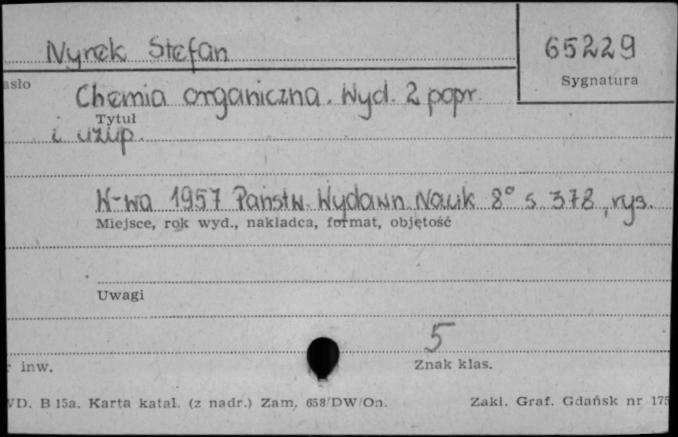 Nyrek Stefan
65229
asło
Sygnatura
Chemia organiczna. Wyd. 2 popr.
Tytuł
i uzup.
W-wa 1957 Państw. Wydawn Nauk 8° s 378, rys.
Miejsce, rok wyd., nakładca, format, objętość
Uwagi
5
inw.
Znak klas.
WD. B 15a. Karta katal. (z nadr.) Zam. 658/DW/On. Zakł. Graf. Gdańsk nr 175